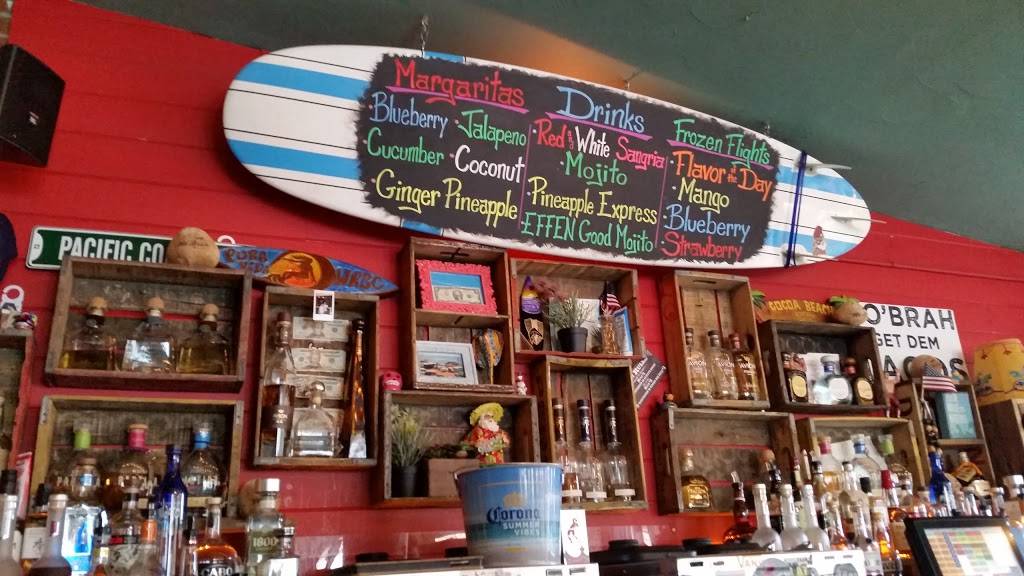 Margaritas
Blueberry
Jalapeno
Cucumber
Coconut
Ginger Pineapple
Drinks
Red and White Sangria
Mojito
Pineapple Express
EFFEN Good Mojito
Frozen Flights
Flavor of the Day
Mango
Blueberry
Strawberry
PACIFIC CO
PURA VIDA
COCOA BEACH
O'BRAH
GET DEM
ACOS
Corona
SUMMER
VIBES
1800
CABO